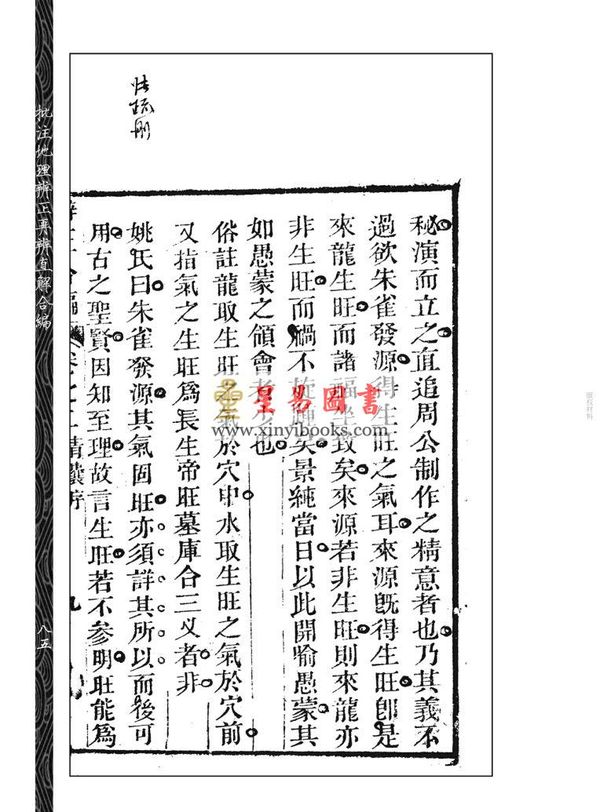 秘演而立之直追周公制作之精意者也乃其義不
過欲朱雀發源得生旺之氣耳來源旣得生旺卽是
來龍生旺而諸福坐致矣來源若非生旺則來龍亦
非生旺而禍不旋踵矣景純當日以此開喻愚蒙其
如愚蒙之領會者少也
俗註龍取生旺之氣於穴中水取生旺之氣於穴前
又指氣之生旺爲長生帝旺墓庫合三义者非
姚氏曰朱雀發源其氣固旺亦須詳其所以而後可
用古之聖賢因知至理故言生旺若不參明旺能爲
批注地理辨正再辨直解合編
八五
星易圖書
www.xinyibooks.com
版权材料